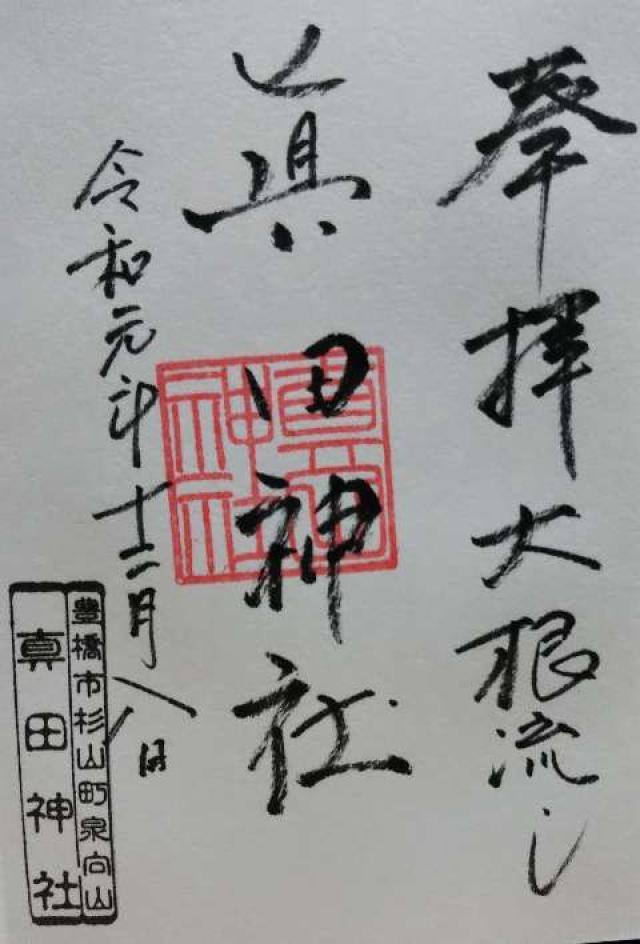 奉拝大根流し
眞田神社
眞田神社
令和元年十二月八日
豊橋市杉山町泉向山
真田神社